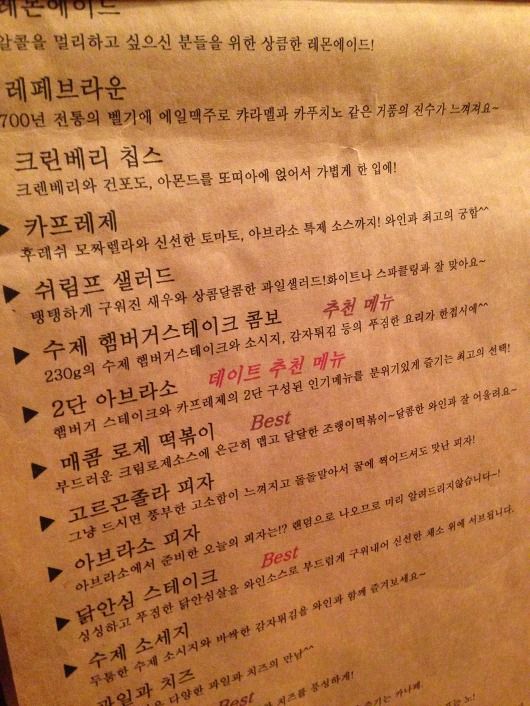 레몬에이드
알콜을 멀리하고 싶으신 분들을 위한 상큼한 레몬에이드!
레페브라운
700년 전통의 벨기에 에일맥주로 캬라멜과 카푸치노 같은 거품의 진수가 느껴져요~
크린베리 칩스
크랜베리와 건포도, 아몬드를 또띠아에 얹어서 가볍게 한 입에!
▶ 카프레제
후레쉬 모짜렐라와 신선한 토마토, 아브라소 특제 소스까지! 와인과 최고의 궁합^^
▶ 쉬림프 샐러드
탱탱하게 구워진 새우와 상콤달콤한 과일샐러드!화이트나 스파클링과 잘 맞아요~
▶ 수제 햄버거스테이크 콤보 추천 메뉴
230g의 수제 햄버거스테이크와 소시지, 감자튀김 등의 푸짐한 요리가 한접시에^^
▶ 2단 아브라소 데이트 추천 메뉴
햄버거 스테이크와 카프레제의 2단 구성된 인기메뉴를 분위기있게 즐기는 최고의 선택!
▶ 매콤 로제 떡볶이 Best
부드러운 크림로제소스에 은근히 맵고 달달한 조랭이떡볶이~달콤한 와인과 잘 어울려요~
▶ 고르곤졸라 피자
그냥 드시면 풍부한 고소함이 느껴지고 돌돌말아서 꿀에 찍어드셔도 맛난 피자!
▶ 아브라소 피자
아브라소에서 준비한 오늘의 피자는!? 랜덤으로 나오므로 미리 알려드리지않습니다~!
▶ 닭안심 스테이크 Best
싱싱하고 푸짐한 닭안심살을 와인소스로 부드럽게 구워내어 신선한 채소 위에 서브됩니다.
▶ 수제 소세지
두툼한 수제 소시지와 바싹한 감자튀김을 와인과 함께 즐겨보세요~
과일과 치즈
다양한 과일과 치즈의 만남^^
Best
치즈를 풍성하게!
즐기는 카나페.